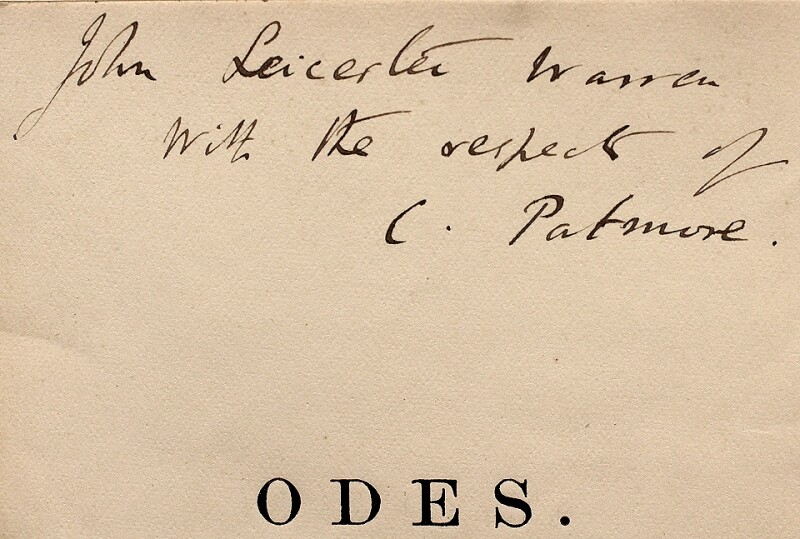 John Leicester Warren
With the respects of
C. Patmore.
ODES.